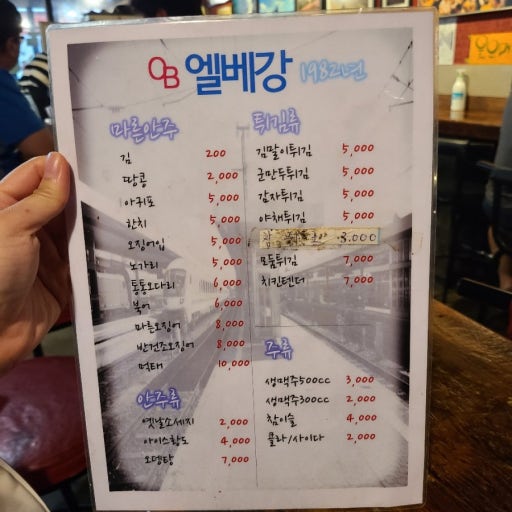 OB 엘베강 1982년
마른안주
김 200
땅콩 2,000
아귀포 5,000
한치 5,000
오징어입 5,000
노가리 5,000
통통오다리 6,000
북어 6,000
마른오징어 8,000
반건조오징어 8,000
먹태 10,000
안주류
옛날소세지 2,000
아이스황도 4,000
오뎅탕 7,000
튀김류
김말이튀김 5,000
군만두튀김 5,000
감자튀김 5,000
야채튀김 5,000
3,000
모둠튀김 7,000
치킨텐더 7,000
주류
생맥주500cc 3,000
생맥주300cc 2,000
참이슬 4,000
콜라/사이다 2,000